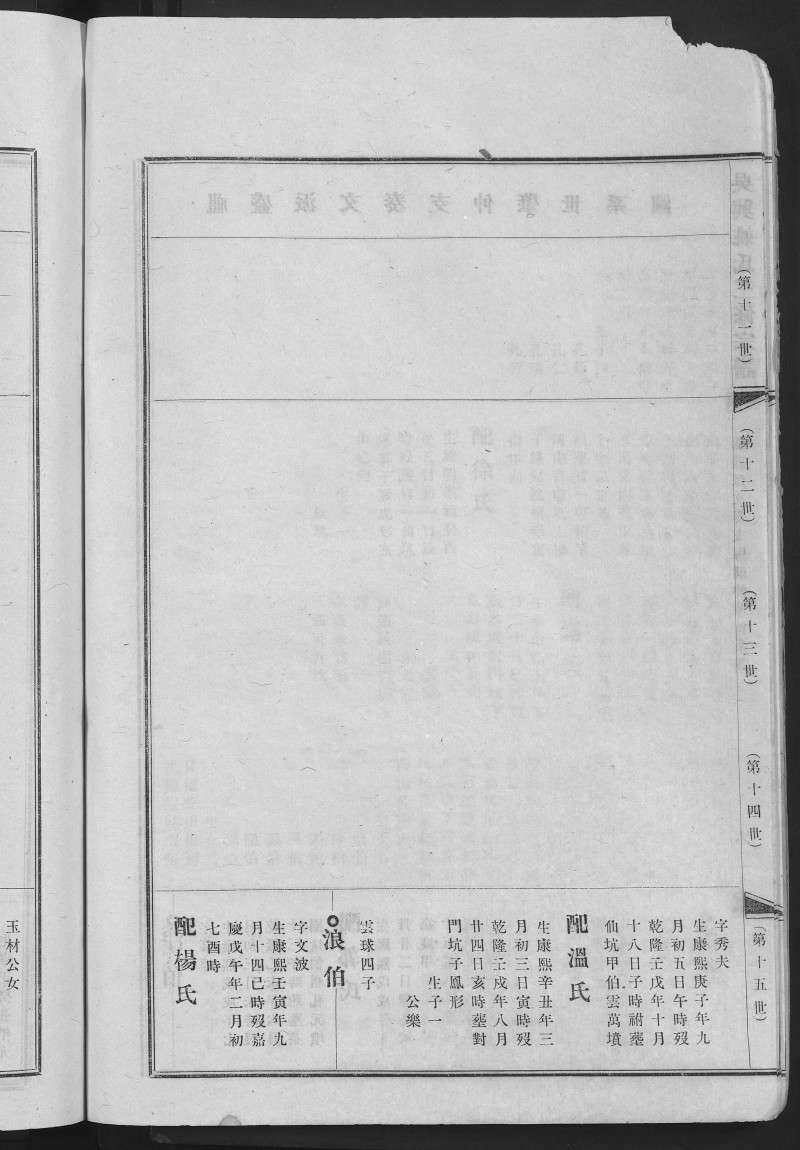 （第十一世）
（第十二世）
（第十三世）
（第十四世）
（第十五世）
字秀夫
生康熙庚子年九
月初五日午時歿
乾隆壬戌年十月
十八日子時祔塟
仙坑甲伯雲萬墳
配溫氏
生康熙辛丑年三
月初三日寅時歿
乾隆壬戌年八月
廿四日亥時塟對
門坑子鳳形
生子一
公樂
雲球四子
浪伯
字文波
生康熙壬寅年九
月十四巳時歿嘉
慶戊午年二月初
七酉時
配楊氏
玉材公女